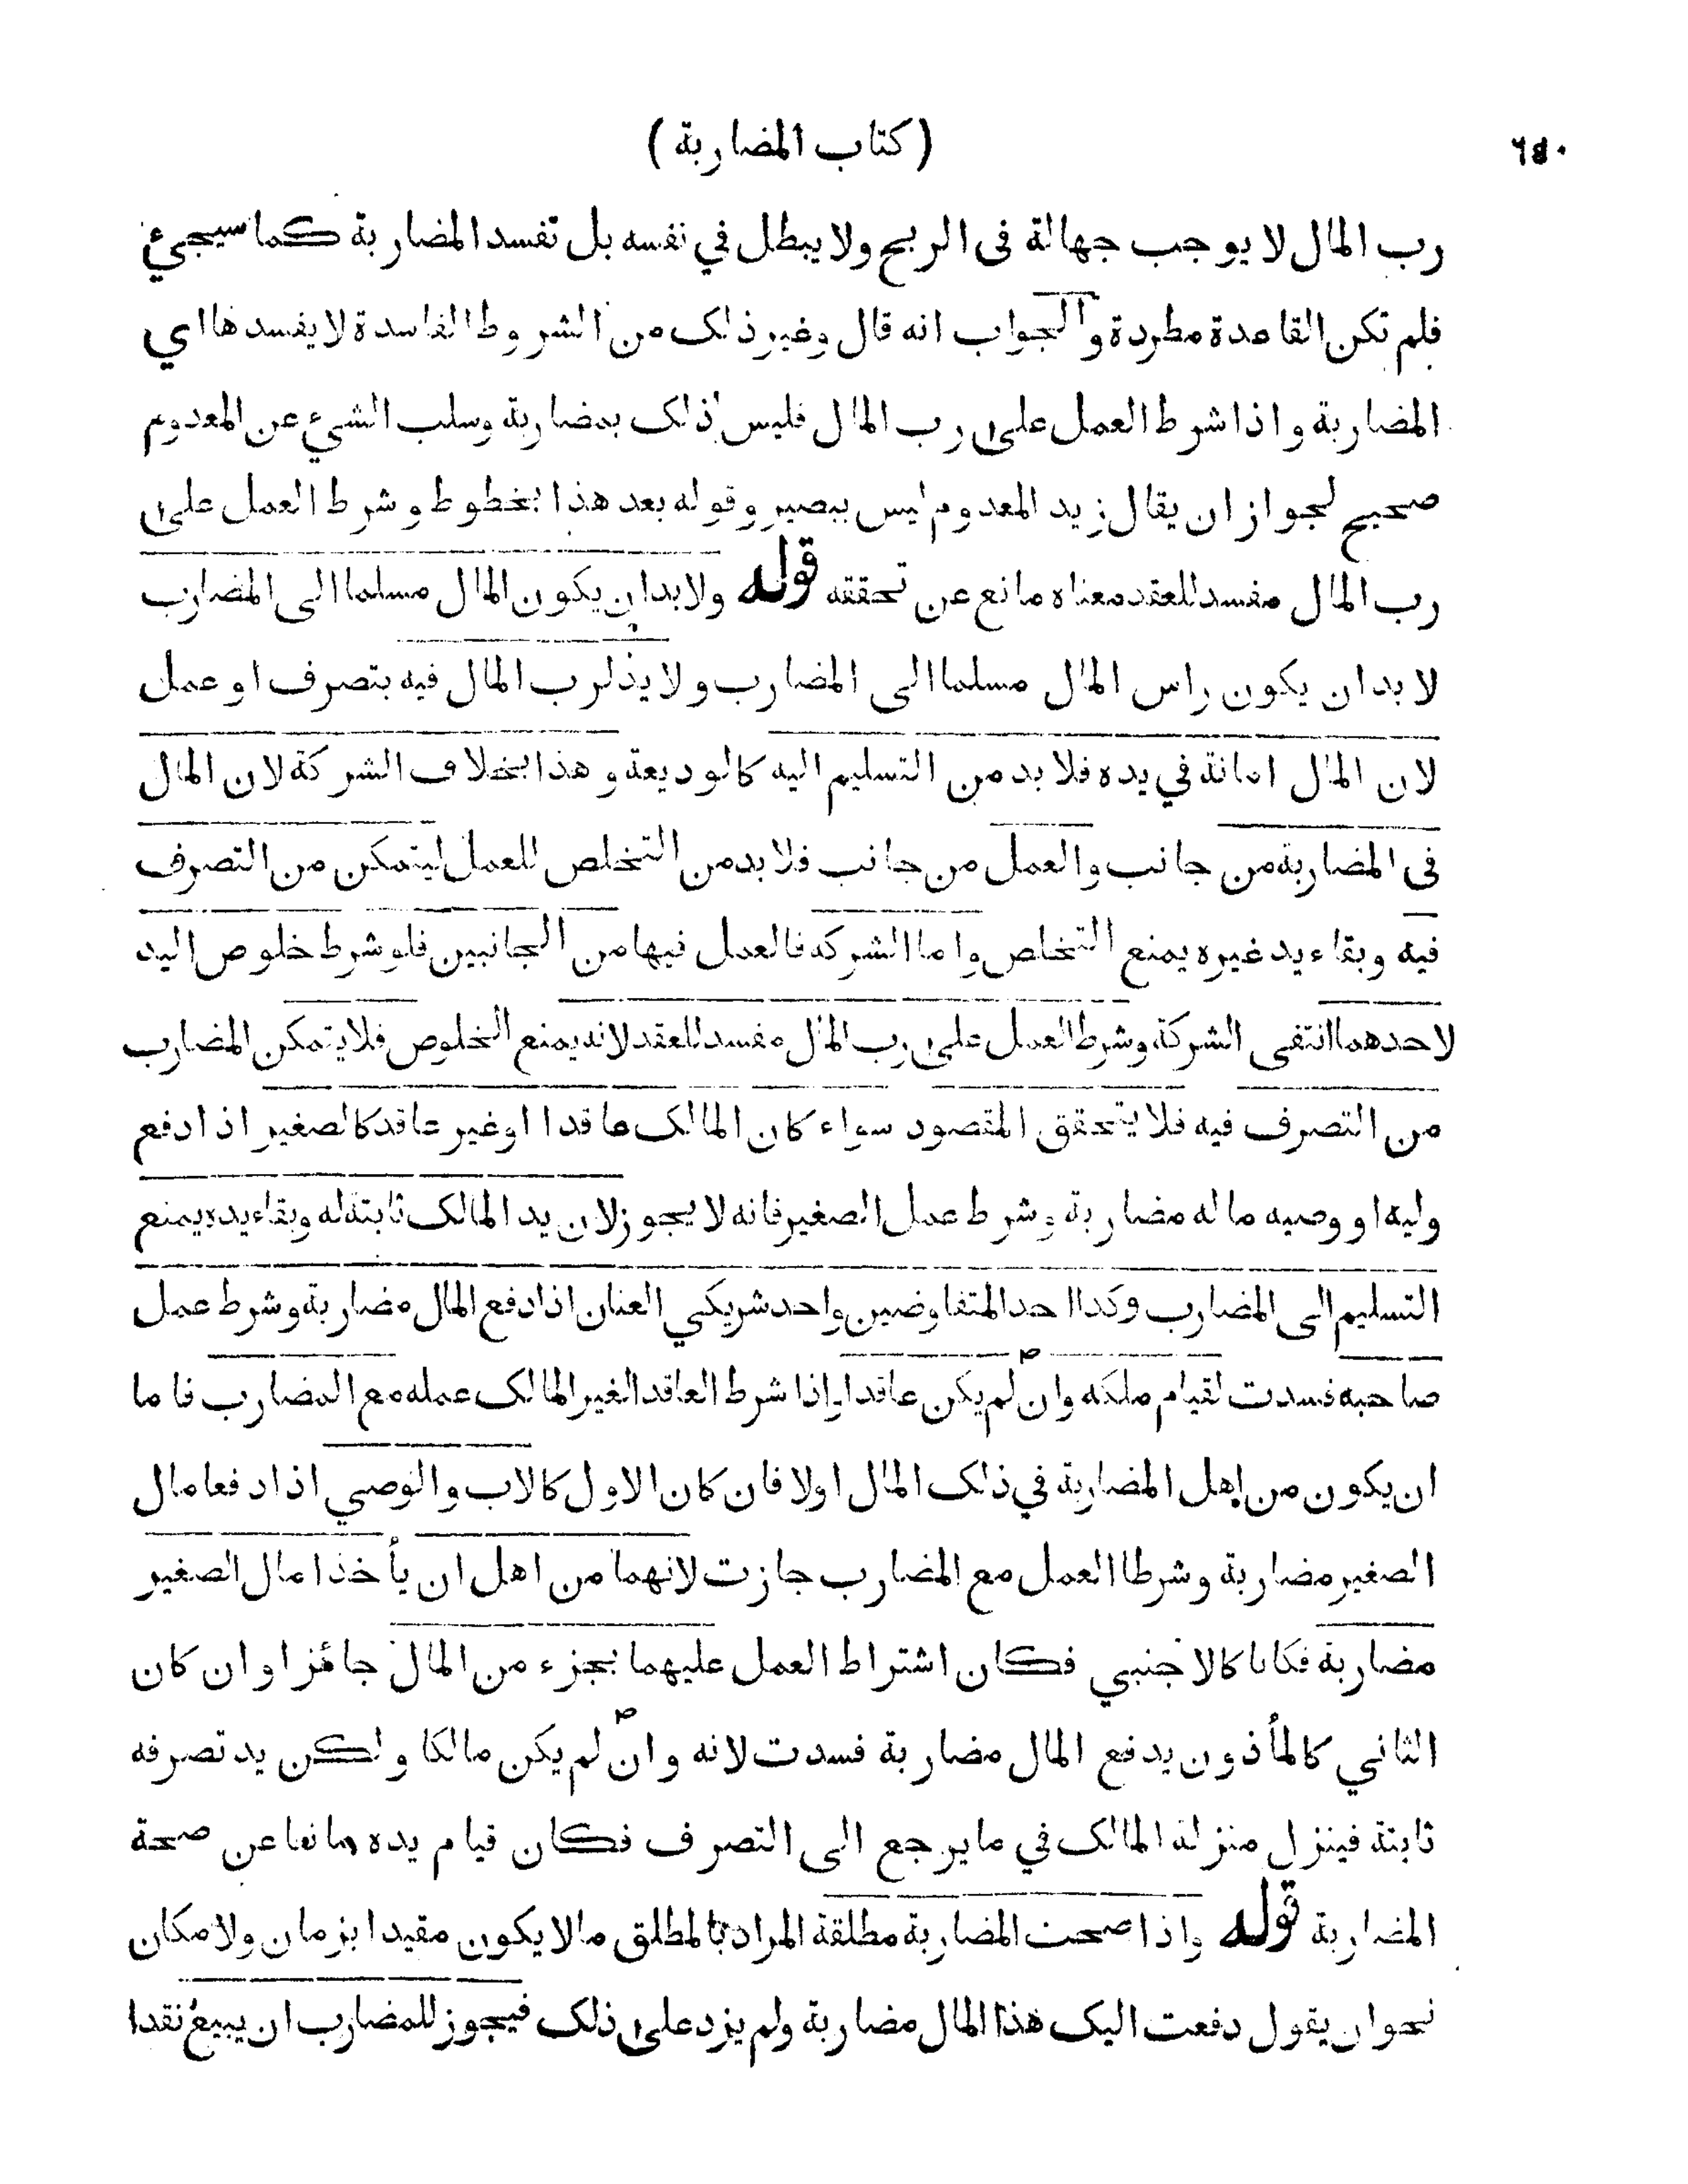 (كتاب المضاربة)
٦٤٠
رب المال لا يوجب جهالة فى الربح ولا يبطل في نفسه بل تفسد المضاربة كما سيجيء
فلم تكن القاعدة مطردة والجواب انه قال وغير ذلك من الشروط الفاسدة لا يفسدها اي
المضاربة واذا شرط العمل على رب المال فليس ذلك بمضاربة وسلب الشيء عن المعدوم
صحيح لجواز ان يقال زيد المعدوم ليس ببصير وقوله بعد هذا بخطوط وشرط العمل على
رب المال مفسد للعقد معناه مانع عن تحققه قوله ولا بد ان يكون المال مسلما الى المضارب
لا بد ان يكون راس المال مسلما الى المضارب ولا يد لرب المال فيه بتصرف او عمل
لان المال امانة في يده فلا بد من التسليم اليه كالوديعة وهذا بخلاف الشركة لان المال
فى المضاربة من جانب والعمل من جانب فلا بد من التخلص للعمل ليتمكن من التصرف
فيه وبقاء يد غيره يمنع التخلص واما الشركه فالعمل فيها من الجانبين فلو شرط خلوص اليد
لاحدهما انتفى الشركة وشرط العمل على رب المال مفسد للعقد لانه يمنع الخلوص فلا يتمكن المضارب
من التصرف فيه فلا يتحقق المقصود سواء كان المالك عاقدا او غير عاقد كالصغير اذا دفع
وليه او وصيه ماله مضاربة وشرط عمل الصغير فانه لا يجوز لان يد المالك ثابتة له وبقاء يده يمنع
التسليم الى المضارب وكدا احد المتفاوضين واحد شريكي العنان اذا دفع المال مضاربة وشرط عمل
صاحبه فسدت لقيام ملكه وان لم يكن عاقدا واذا شرط العاقد الغير المالك عمله مع المضارب فاما
ان يكون من اهل المضاربة في ذلك المال اولا فان كان الاول كالاب والوصي اذا دفعا مال
الصغير مضاربة وشرطا العمل مع المضارب جازت لانهما من اهل ان يأخذا مال الصغير
مضاربة فكانا كالاجنبي فكان اشتراط العمل عليهما بجزء من المال جائزا وان كان
الثاني كالمأذون يدفع المال مضاربة فسدت لانه وان لم يكن مالكا ولكن يد تصرفه
ثابتة فينزل منزلة المالك في ما يرجع الى التصرف فكان قيام يده مانعا عن صحة
المضاربة قوله واذا صحت المضاربة مطلقة المراد بالمطلق مالا يكون مقيدا بزمان ولا مكان
نحو ان يقول دفعت اليك هذا المال مضاربة ولم يزد على ذلك فيجوز للمضارب ان يبيع نقدا